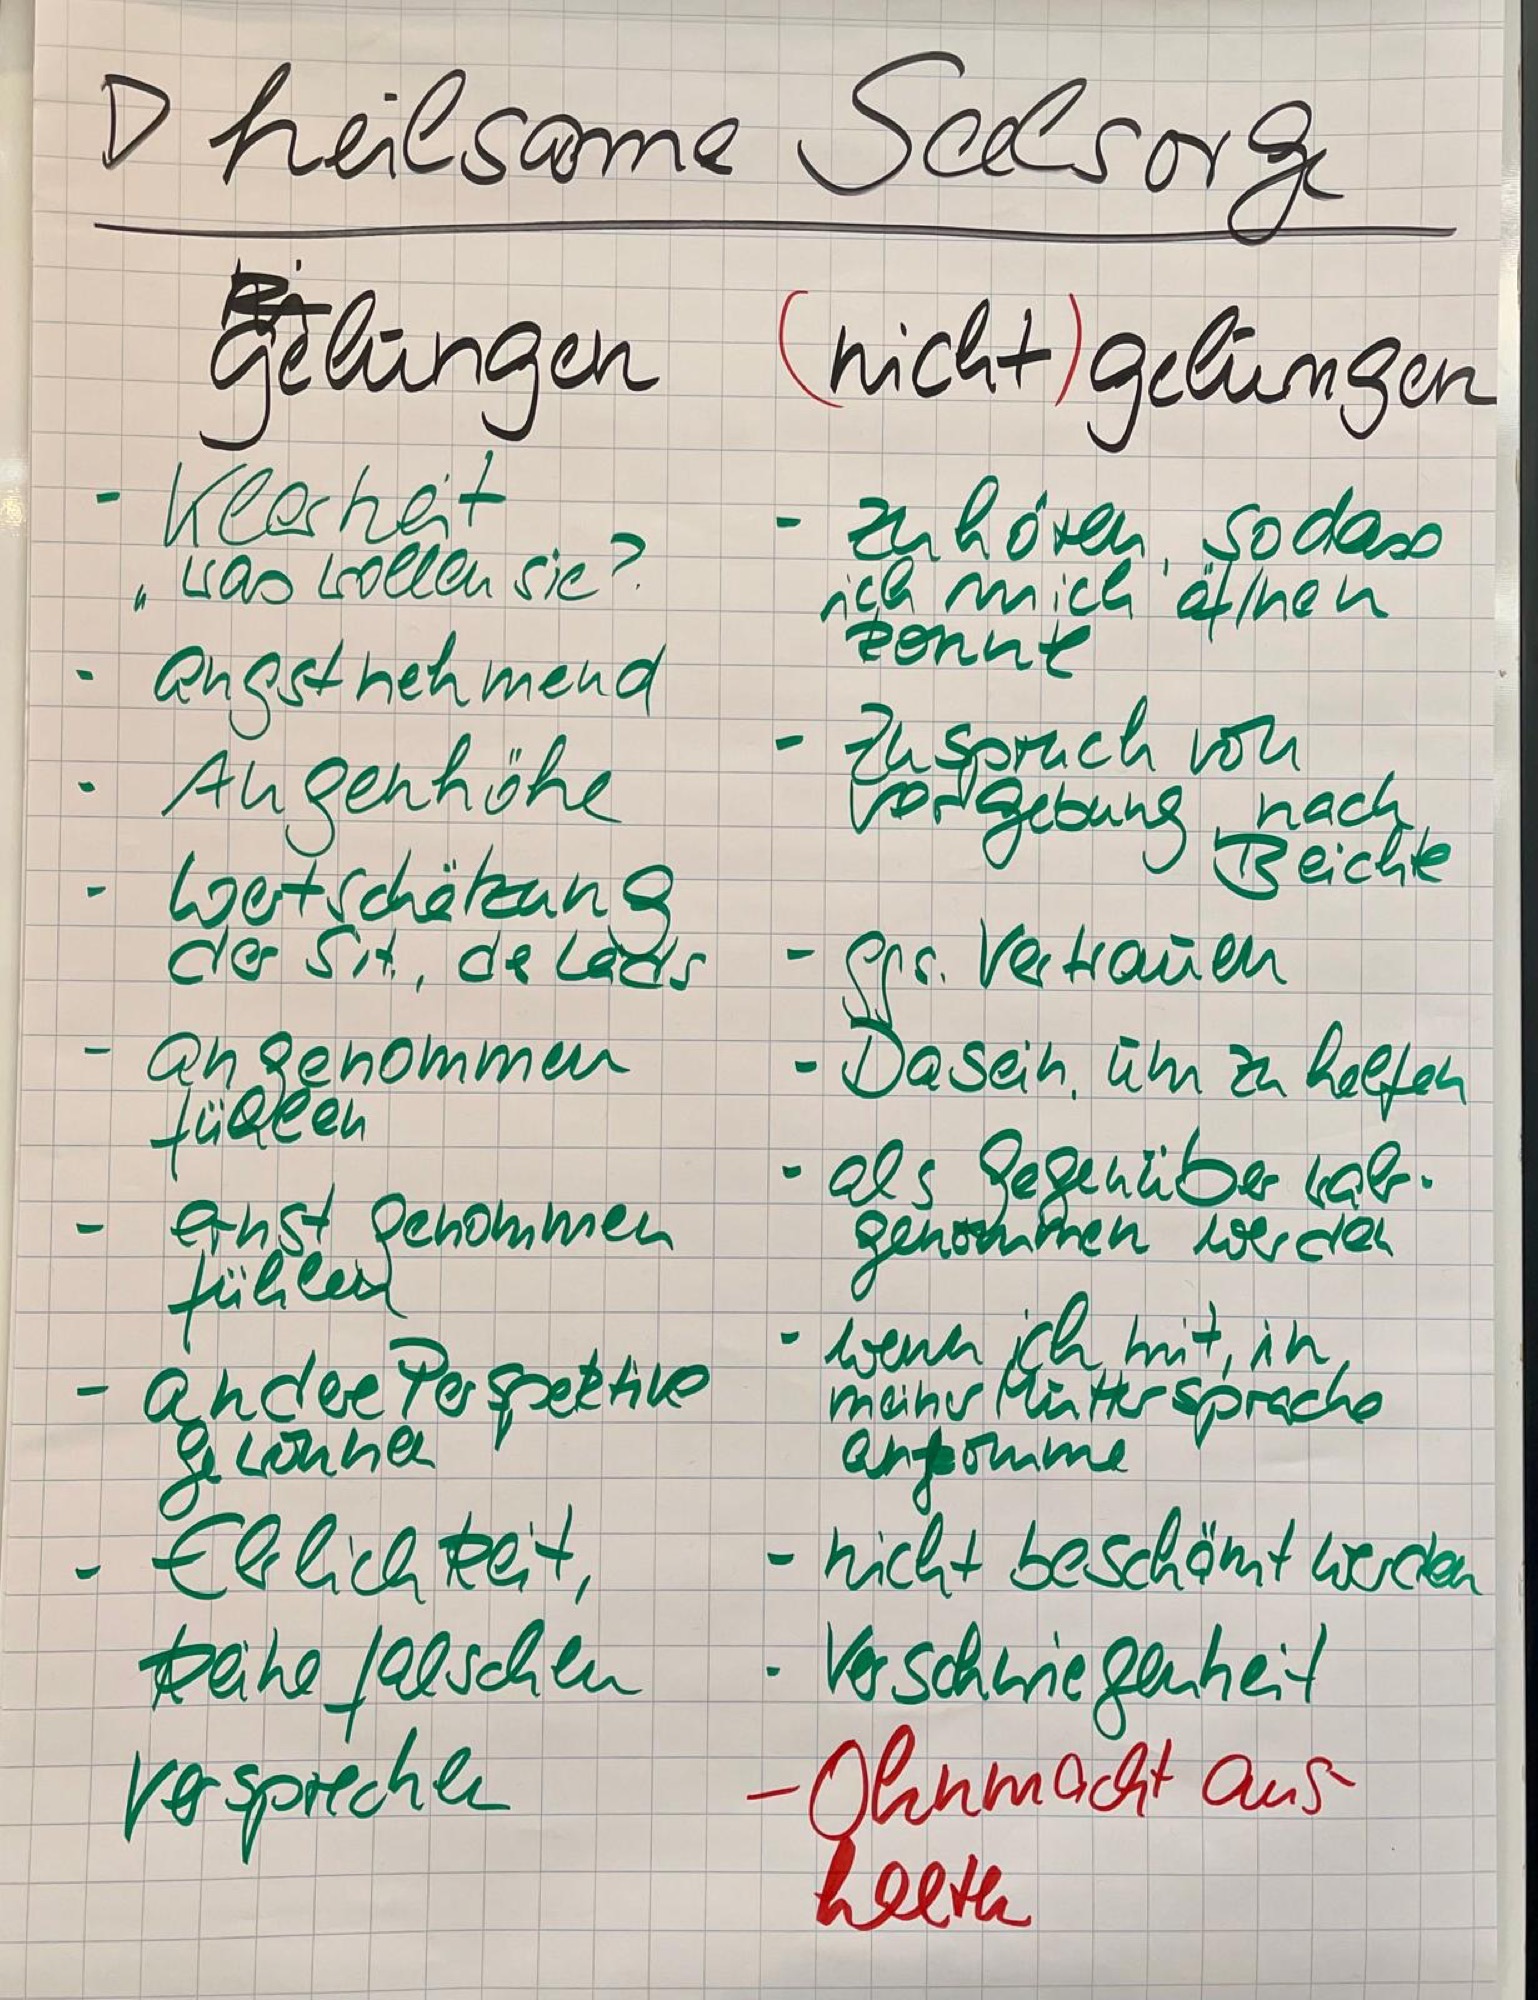 ▷ heilsame Seelsorge
gelungen
- Klarheit
„was wollen sie?
- angstnehmend
- Augenhöhe
- Wertschätzung
der Sit., de Leids
- angenommen
fühlen
- ernst genommen
fühlen
- andere Perspektive
gewonnen
- Ehrlichkeit,
keine falschen
Versprechen
(nicht) gelungen
- zuhören, sodass
ich mich öffnen
konnte
- Zuspruch von
Vergebung nach
Beichte
- ggs. Vertrauen
- Dasein, um zu helfen
- als Gegenüber wahr-
genommen werden
- wenn ich mit, in,
meiner Muttersprache
ankomme
- nicht beschämt werden
- Verschwiegenheit
- Ohnmacht aus-
halten